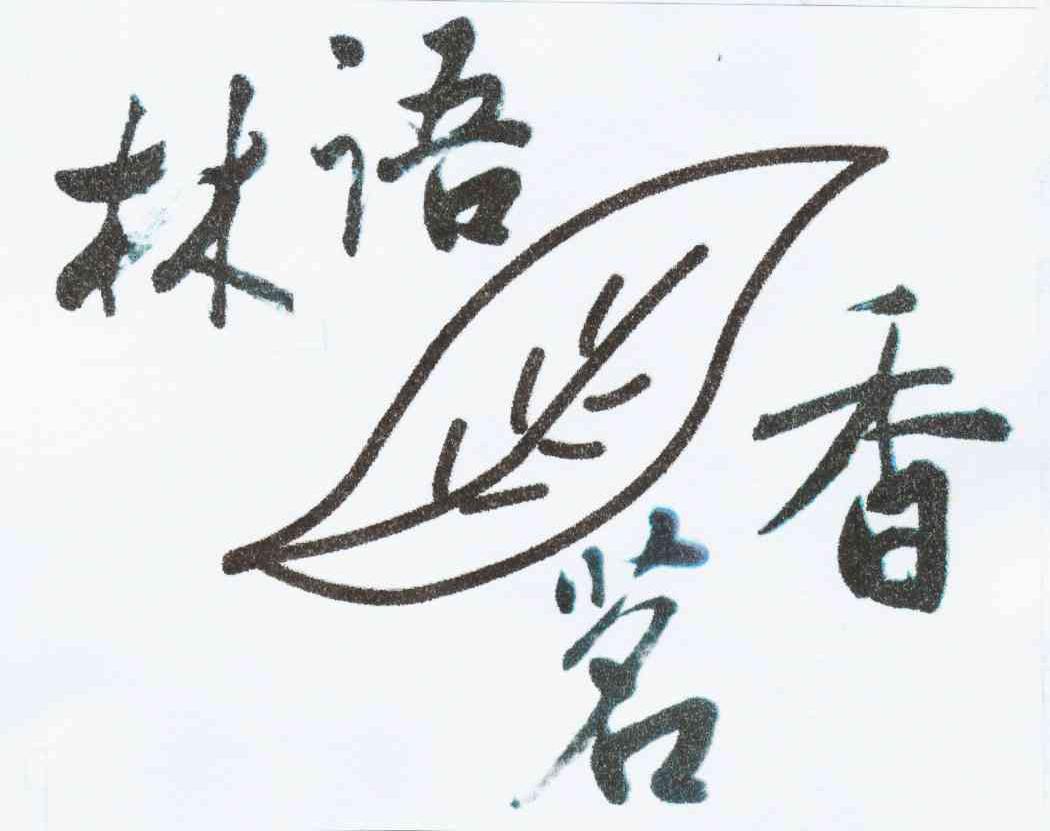 林语
茗香